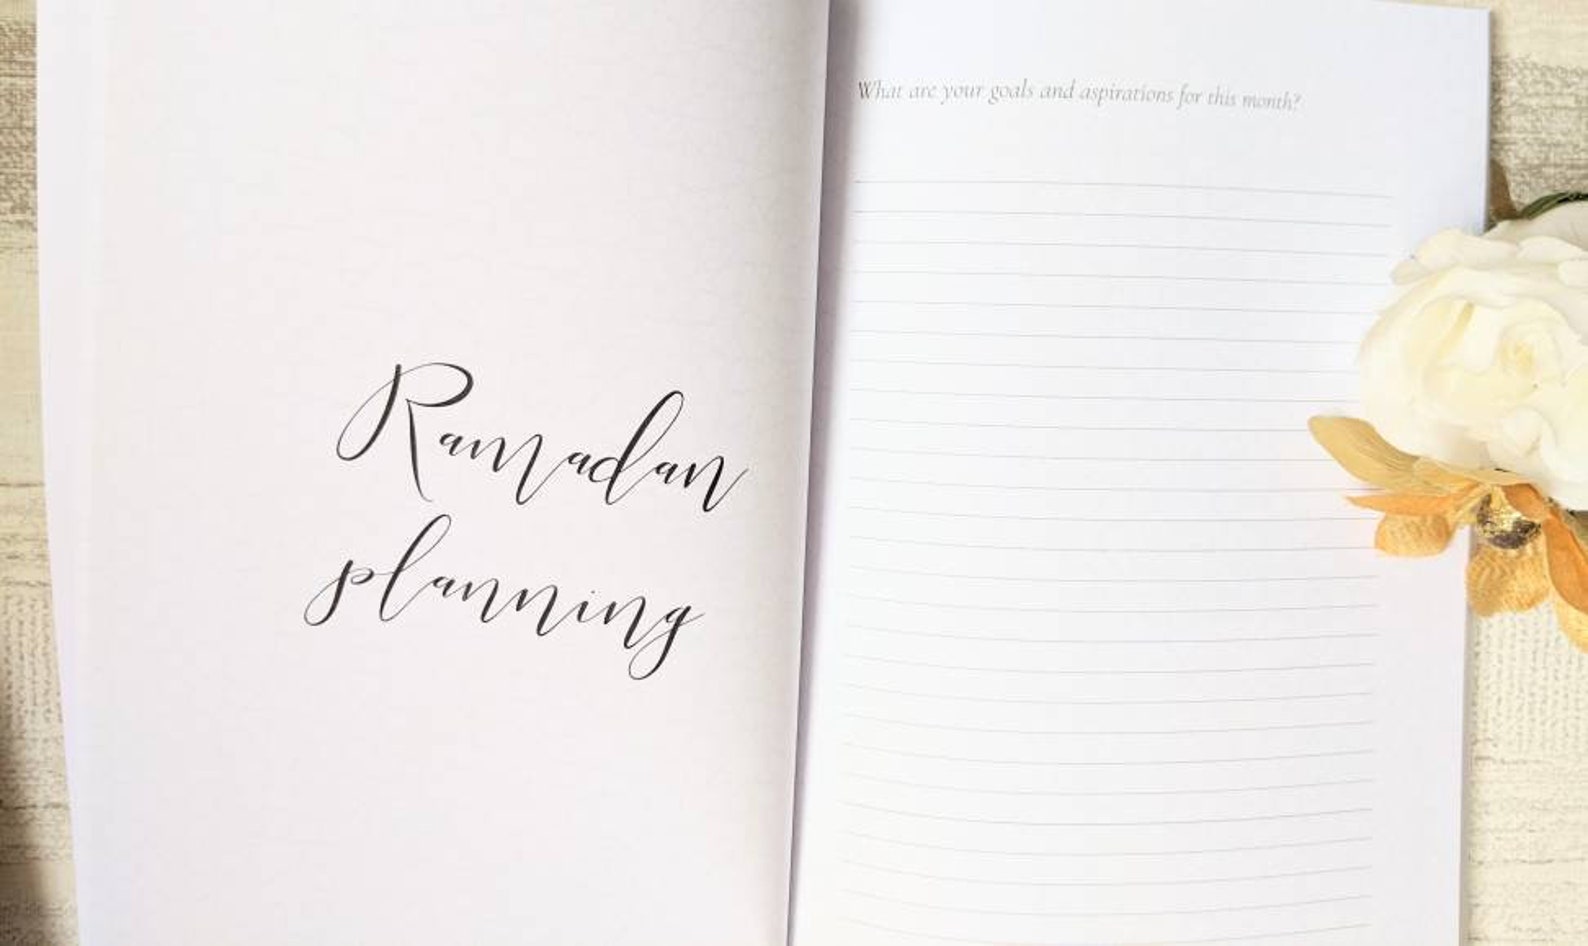 Ramadan
planning
What are your goals and aspirations for this month?